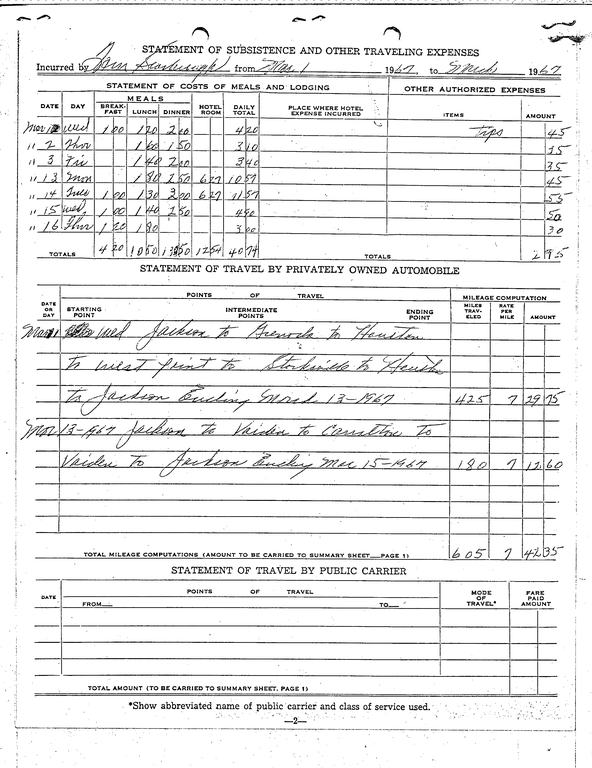 STATEMENT OF SUBSISTENCE AND OTHER TRAVELING EXPENSES
Incurred by Tom Scarbrough from Mar. 1 1967, to 1967
STATEMENT OF COSTS OF MEALS AND LODGING OTHER AUTHORIZED EXPENSES
DATE DAY MEALS BREAK-FAST LUNCH DINNER HOTEL ROOM DAILY TOTAL PLACE WHERE HOTEL EXPENSE INCURRED ITEMS AMOUNT
Mar 1 Wed 1 00 1 20 2 00 4 20 Tips 45
" 2 Thur 1 60 1 50 3 10 35
" 3 Fri 1 40 2 00 3 40 35
" 13 Mon 1 80 2 50 6 27 10 57 45
" 14 Tues 1 00 1 30 3 00 6 27 11 57 55
" 15 Wed, 1 00 1 40 2 50 4 90 50
" 16 Thur 1 20 1 80 3 00 30
TOTALS 4 20 10 50 13 50 12 54 40 74 TOTALS 2 95
STATEMENT OF TRAVEL BY PRIVATELY OWNED AUTOMOBILE
DATE OR DAY POINTS OF TRAVEL MILEAGE COMPUTATION
STARTING POINT INTERMEDIATE POINTS ENDING POINT MILES TRAV-ELED RATE PER MILE AMOUNT
Mar 1 Wed Jackson to Grenada to Houston
to West Point to Starkville to Houston
to Jackson Ending March 13-1967 425 7 29 75
Mar 13-1967 Jackson to Vaiden to Carrollton to
Vaiden to Jackson Ending Mar 15-1967 180 7 12 60
TOTAL MILEAGE COMPUTATIONS (AMOUNT TO BE CARRIED TO SUMMARY SHEET—PAGE 1) 605 7 42 35
STATEMENT OF TRAVEL BY PUBLIC CARRIER
DATE POINTS OF TRAVEL MODE OF TRAVEL* FARE PAID AMOUNT
FROM— TO—
TOTAL AMOUNT (TO BE CARRIED TO SUMMARY SHEET, PAGE 1)
*Show abbreviated name of public carrier and class of service used.
—2—